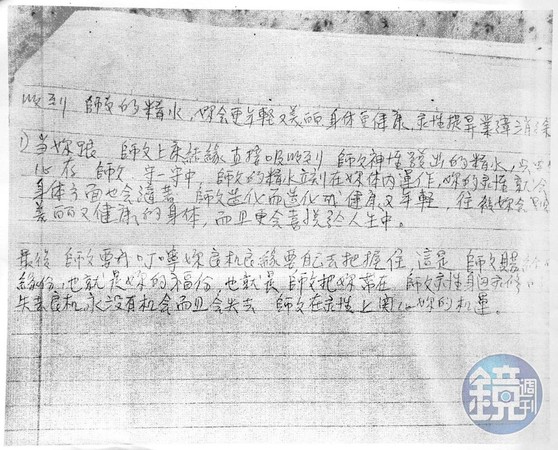 吸到 師父的精水,妳会更年輕又美麗 身体更健康,灵性提昇業障消除
1)当妳跟 師父上來結緣直接吸收到 師父神性發出的精水,
心存 師父 守一守中, 師父的精水立刻在妳体內運作,妳的灵性就会
身体方面也会隨著 師父造化而造化成健康又年輕,往後妳会
美丽又健康的身体,而且更会喜悅於人生中。
最後 師父要再叮嚀妳良机良緣要自己去把握住 這是 師父賜
緣份,也就是妳的福份,也就是 師父把妳帶在 師父灵性身边
失去良机,永沒有机会而且会失去 師父在灵性上関心妳的机運。
鏡週刊